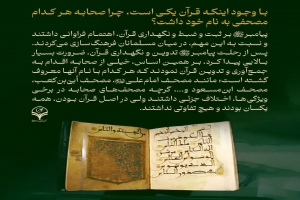 با وجود اینکه قرآن یکی است، چرا صحابه هر کدام
مصحفی به نام خود داشت؟
پیامبر ﷺ بر ثبت و ضبط و نگهداری قرآن، اهتمام فراوانی داشتند
و نسبت به این مهم، در میان مسلمانان فرهنگ‌سازی می‌کردند.
پس از رحلت پیامبر ﷺ تدوین و نگهداری قرآن، ضرورت بسیار
بالایی پیدا کرد. بر همین اساس، خیلی از صحابه اقدام به
جمع‌آوری و تدوین قرآن نمودند که هر کدام با نام آنها معروف
گشته است؛ مانند مصحف امام علی، مصحف أبی‌بن‌کعب،
مصحف ابن‌مسعود و.... گرچه مصحف‌های صحابه در برخی
ویژگی‌ها، اختلاف جزئی داشتند ولی در اصل قرآن بودن، همه
یکسان بودند و هیچ تفاوتی نداشتند.